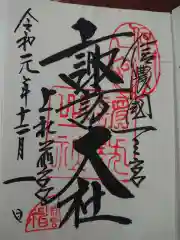 信濃國一之宮
諏訪大社
上社前宮
令和元年十二月一日